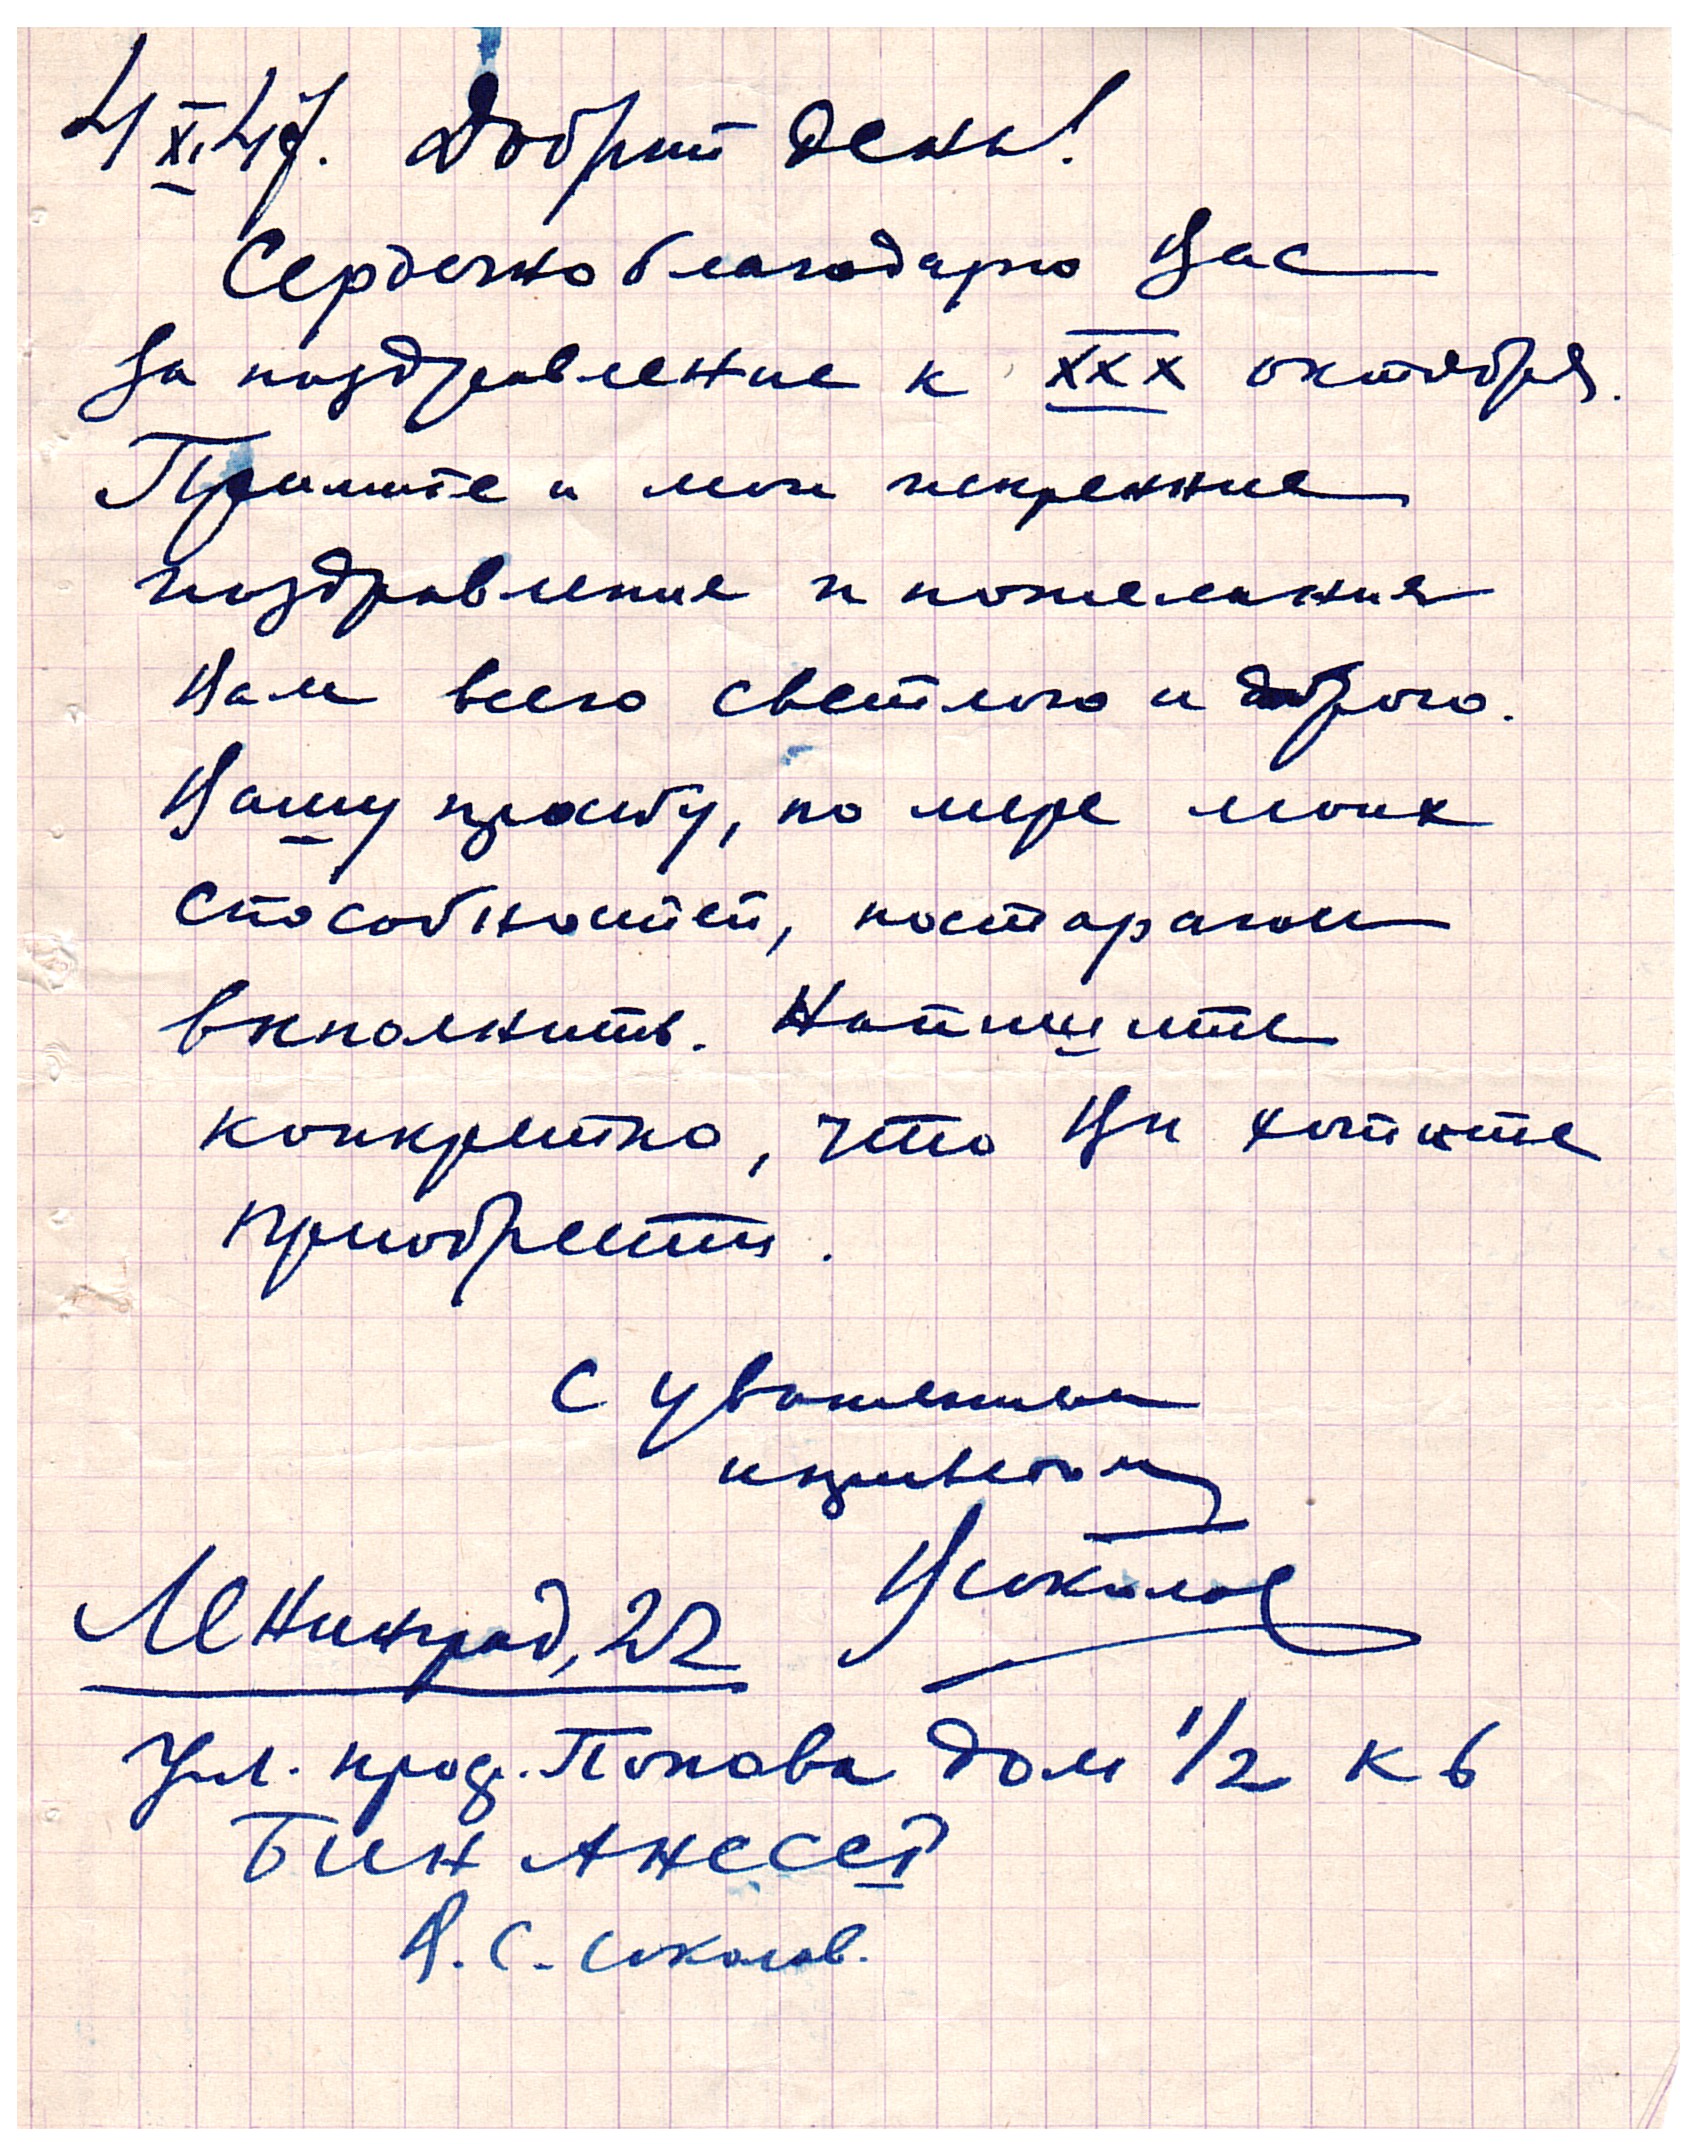 4 XI 47. Добрый день!
Сердечно благодарю Вас
за поздравление к XXX октября.
Примите и мои искренние
поздравление и пожелания
Вам всего светлого и доброго.
Вашу просьбу, по мере моих
способностей, постараюсь
выполнить. Напишите
конкретно, что Вы хотите
приобрести.
С уважением
и приветом
Соколов
Ленинград, 22
ул. проф. Попова дом 1/2 к 6
Бин АНССС
А. С. Соколов.